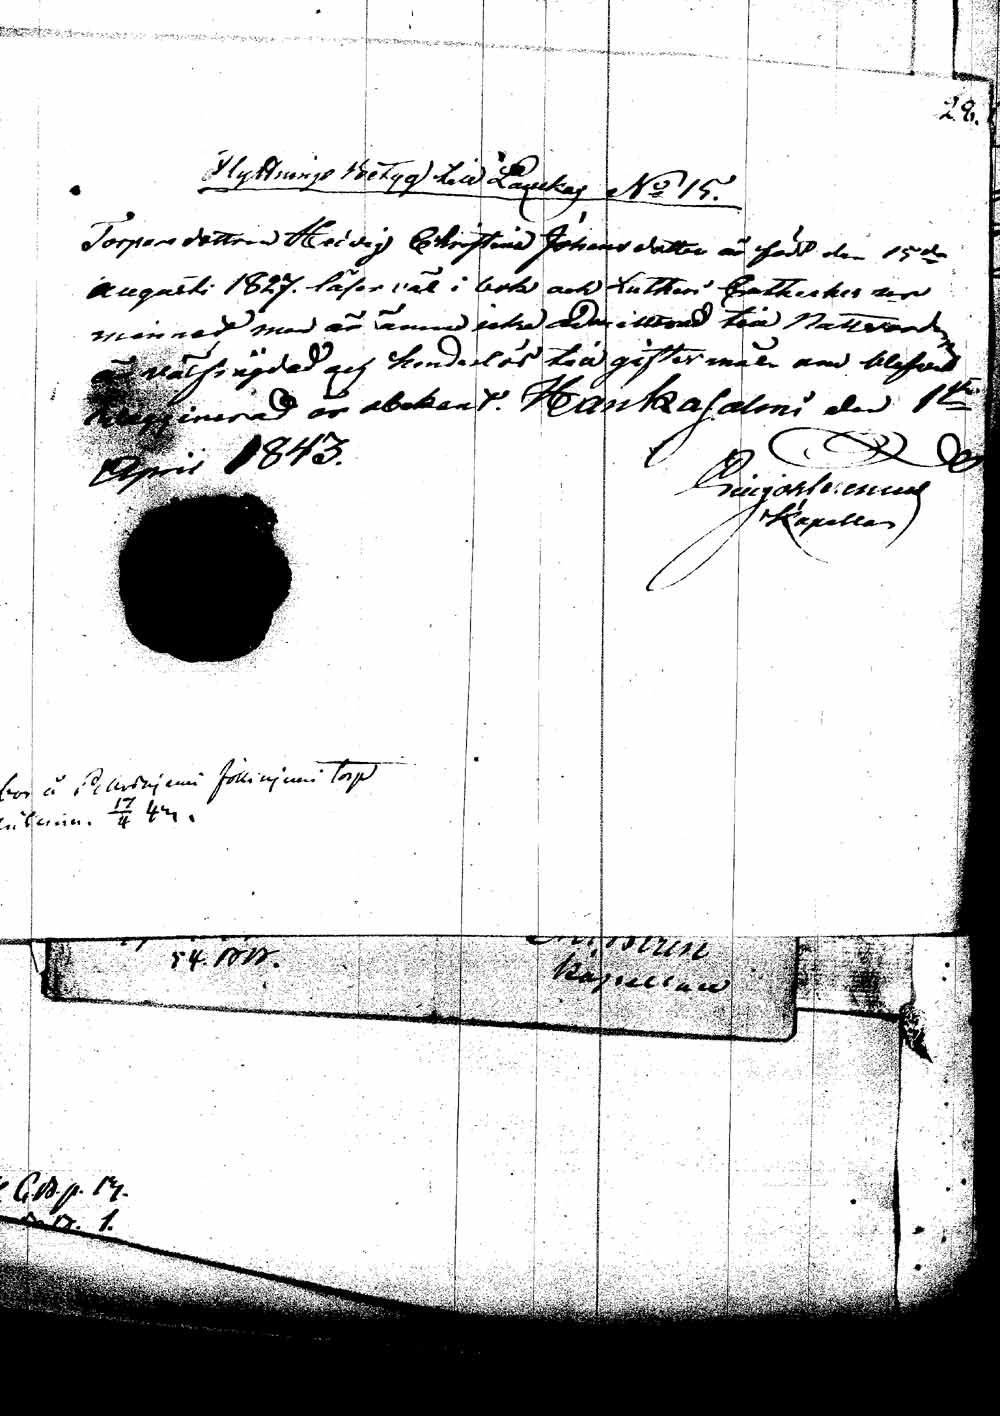 28.
Flyttnings Betyg till Laukas No 15.
Torpare dottren Hedvig Christina Johans dotter är född den 15de
Augusti 1827. läser väl i bok och Lutheri Catheches ur
minnet men är ännu icke admitterad till Nattvarden
är välfrägdad och hinderlös till giftermål om blifvit
vaccinerad är obekant. Hankasalmi den 1ste
April 1843.
Kapellan
bor å Jokiniemi torp
17/4 43.
54. BB.
Kapellan
C.B. p. 13.
1.